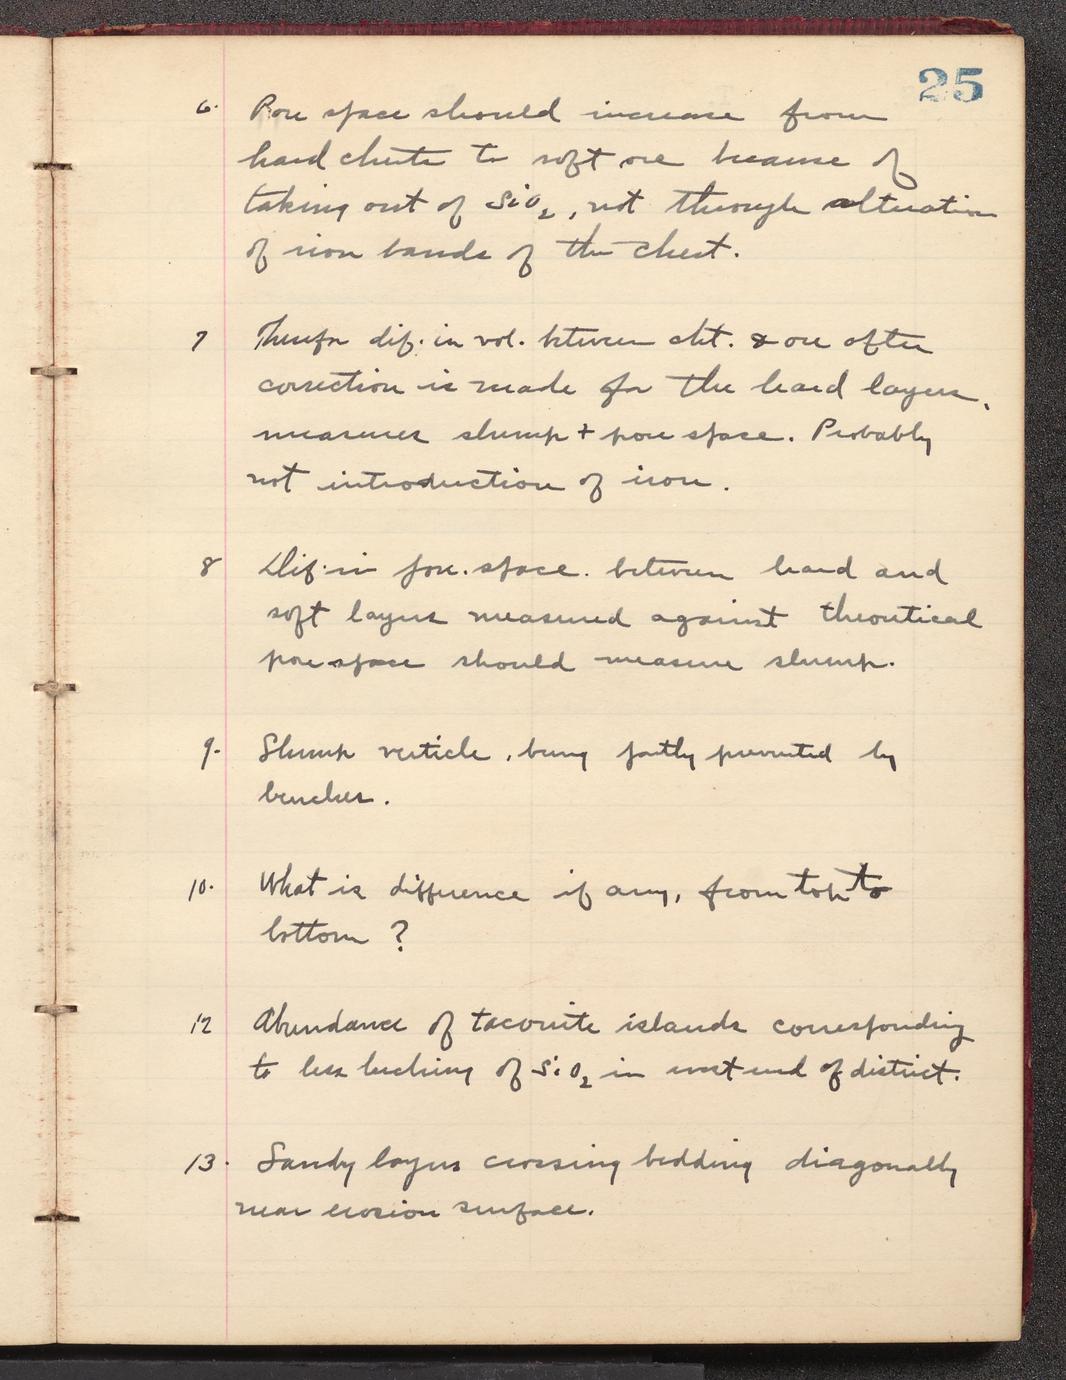 25
6. Pore space should increase from
hard cherte to soft ore because of
taking out of SiO₂, not through alteration
of iron bands of the chert.
7 Therefor dif. in vol. between cht. & ore after
correction is made for the hard layers,
measures slump + pore space. Probably
not introduction of iron.
8 Dif. in pore. space. between hard and
soft layers measured against theoretical
pore space should measure slump.
9. Slump verticle, being partly prevented by
benches.
10. What is difference if any, from top to
bottom ?
12 Abundance of taconite islands corresponding
to less leching of SiO₂ in west end of district.
13. Sandy layers crossing bedding diagonally
near erosion surface.